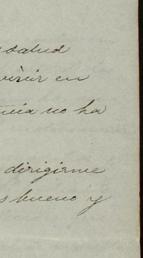 salud
vivir en
no ha
dirigirme
bueno y